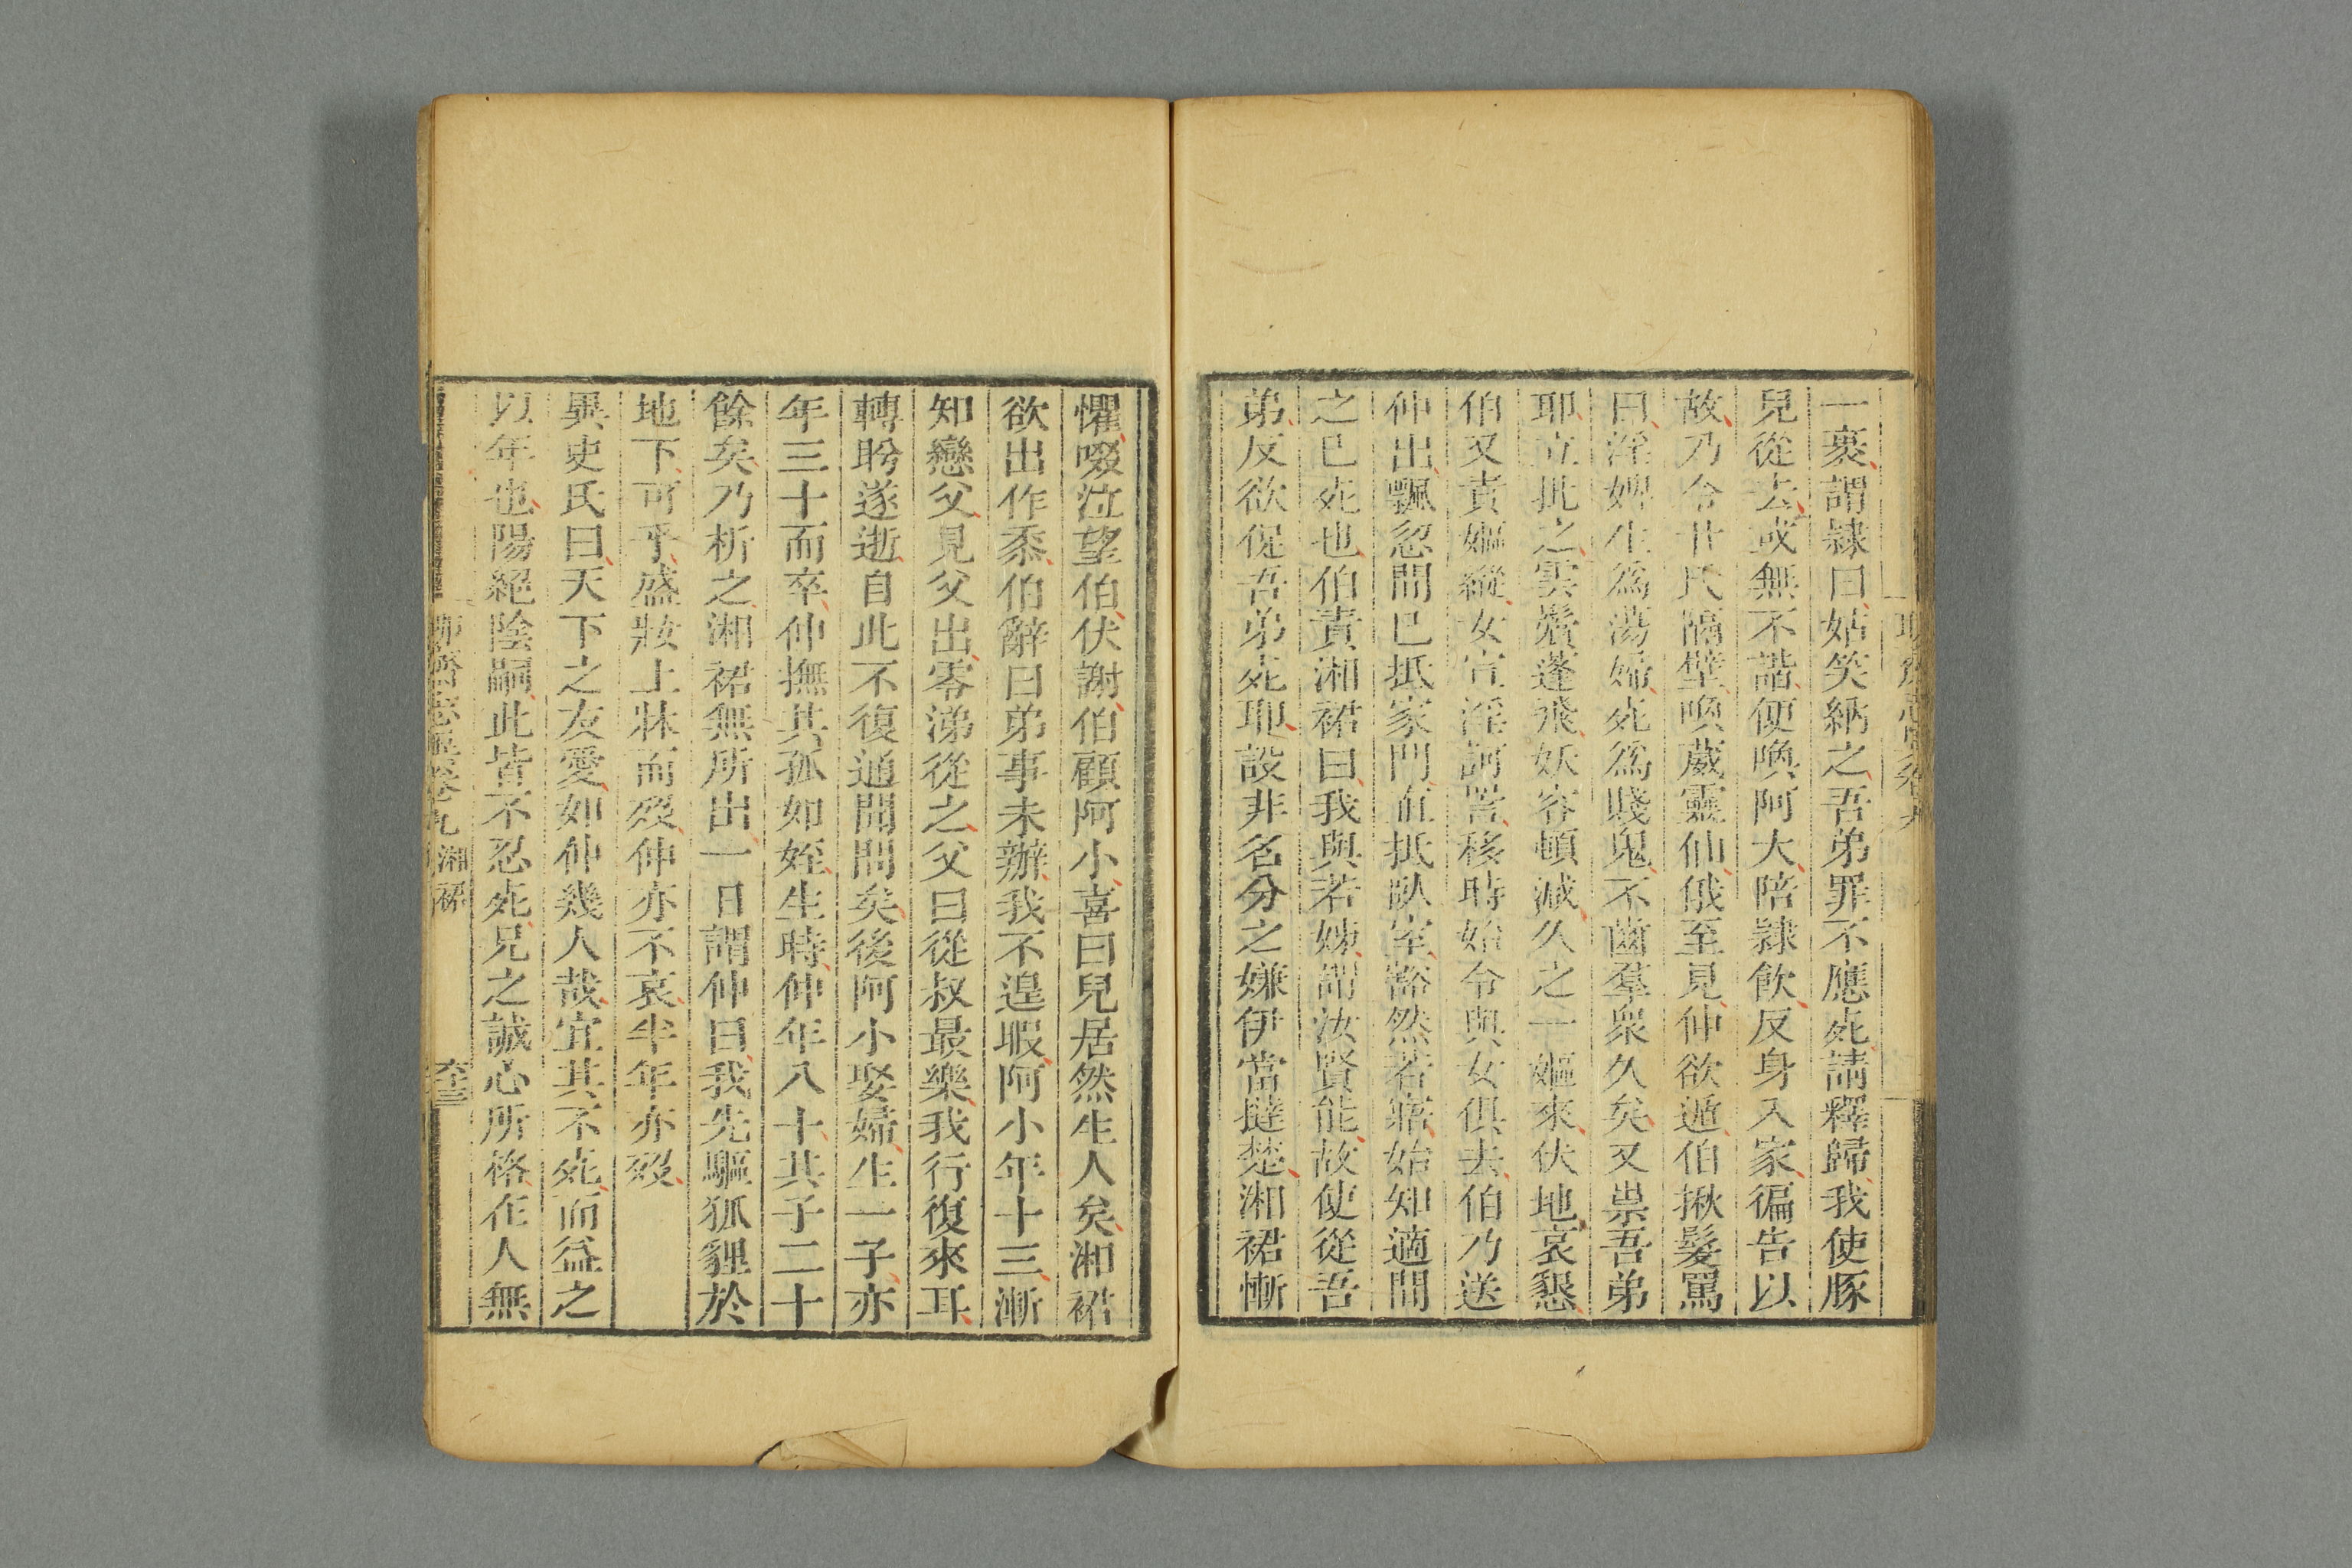 一裹謂隷曰姑笑納之吾弟罪不應死請釋歸我使豚
兒從去或無不諧便喚阿大陪隷飲反身入家徧告以
故乃令甘氏隔壁喚葳靈仙俄至見仲欲遁伯揪髮罵
曰淫婢生爲蕩婦死爲賤鬼不齒羣衆久矣又祟吾弟
耶立批之雲鬢蓬飛妖容頓減久之一嫗來伏地哀懇
伯又責嫗縱女宣淫訶詈移時始令與女俱去伯乃送
仲出飄忽間已抵家門直抵臥室豁然若寤始知適間
之已死也伯責湘裙曰我與若姊謂汝賢能故使從吾
弟反欲促吾弟死耶設非名分之嫌伊當撻楚湘裙慚
懼啜泣望伯伏謝伯顧阿小喜曰兒居然生人矣湘裙
欲出作黍伯辭曰弟事未辦我不遑暇阿小年十三漸
知戀父見父出零涕從之父曰從叔最樂我行復來耳
轉盻遂逝自此不復通聞問矣後阿小娶婦生一子亦
年三十而卒仲撫其孤如姪生時仲年八十其子二十
餘矣乃析之湘裙無所出一日謂仲曰我先驅狐貍於
地下可乎盛妝上牀而歿仲亦不哀半年亦歿
異史氏曰天下之友愛如仲幾人哉宜其不死而益之
以年也陽絕陰嗣此皆不忍死兄之誠心所格在人無
聊齋志異卷九 湘裙 六十三